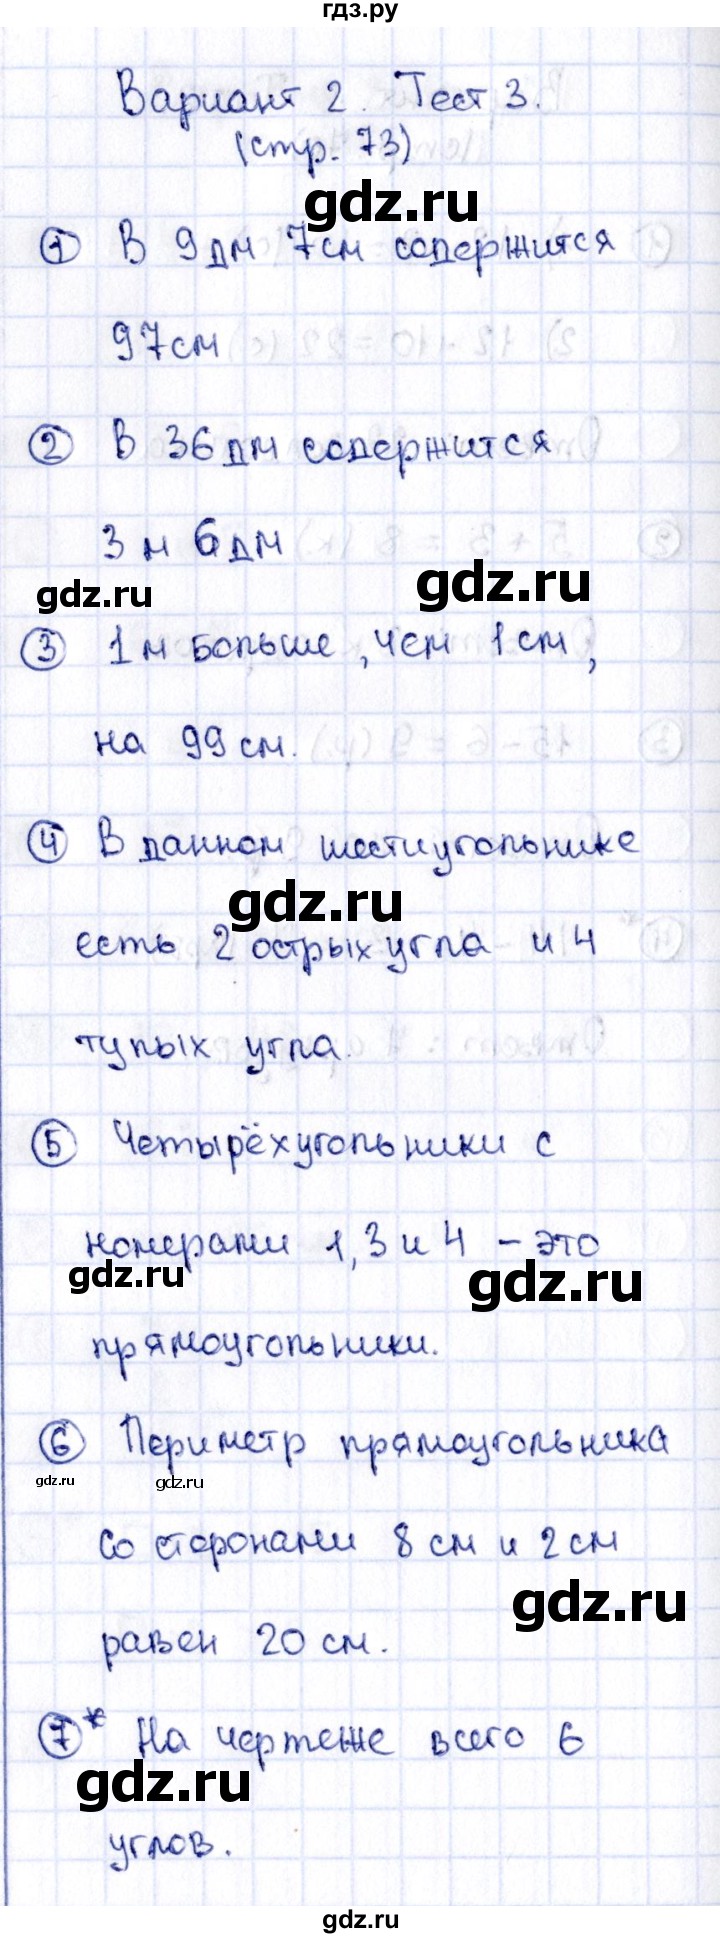 гдз.ру
Вариант 2. Тест 3.
(стр. 73)
gdz.ru
1 В 9дм 7см содержится
97см
2 В 36дм содержится
3 м 6дм
gdz.ru
gdz.ru
3 1м больше, чем 1см,
на 99см.
4 В данном шестиугольнике
gdz.ru
есть 2 острых угла и 4
тупых угла.
5 Четырёхугольники с
номерами 1, 3 и 4 – это
gdz.ru
gdz.ru
прямоугольники.
6 Периметр прямоугольника
gdz.ru
gdz.ru
со сторонами 8 см и 2см
gdz.ru
равен 20 см.
7* На чертеже всего 6
gdz.ru
углов.
gdz.ru